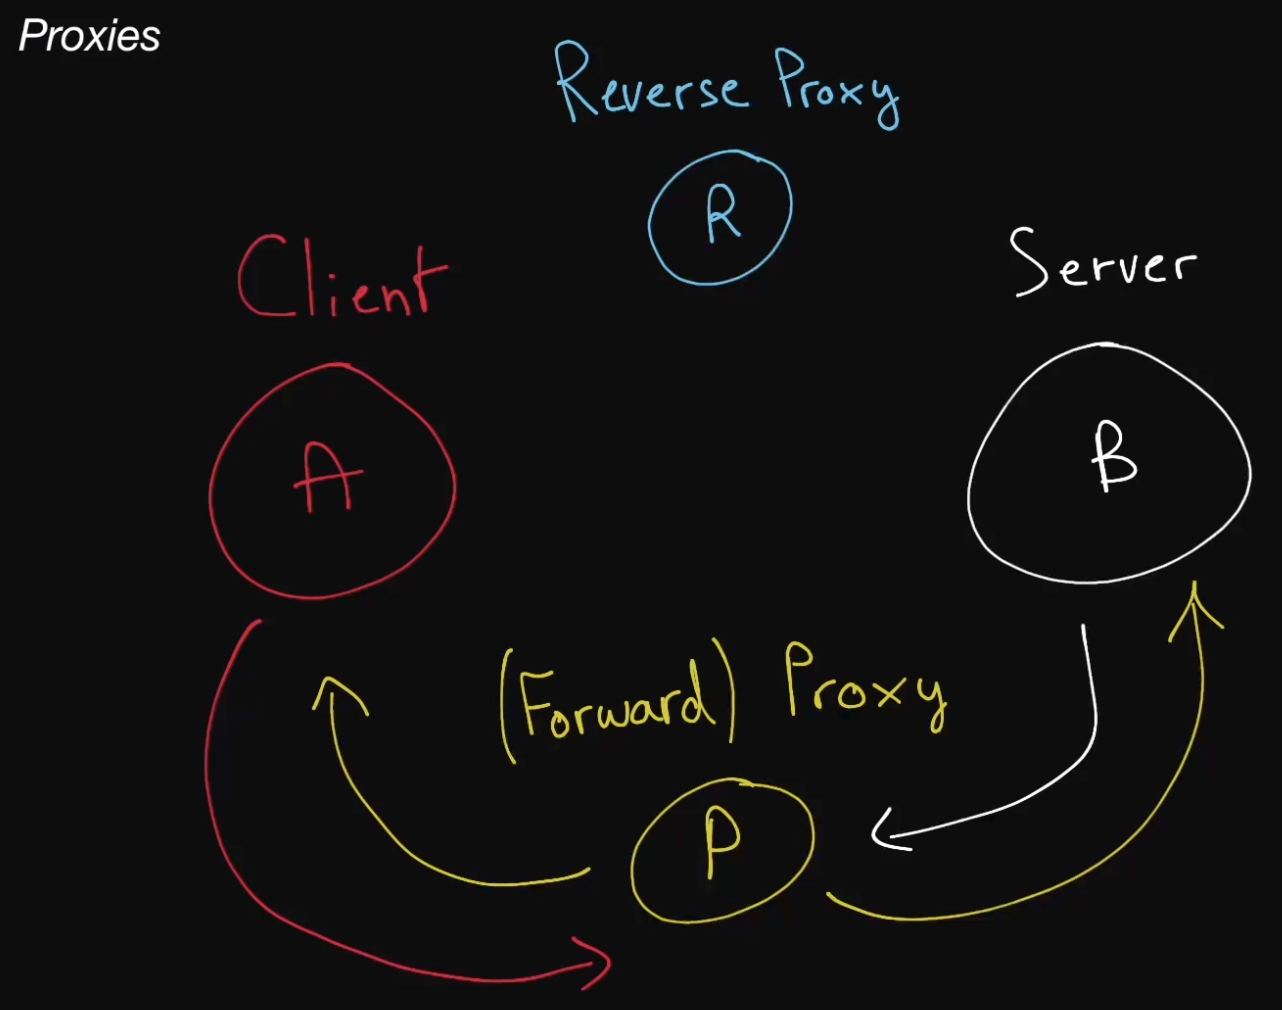 Proxies
Reverse Proxy
R
Client
Server
A
B
(Forward) Proxy
P